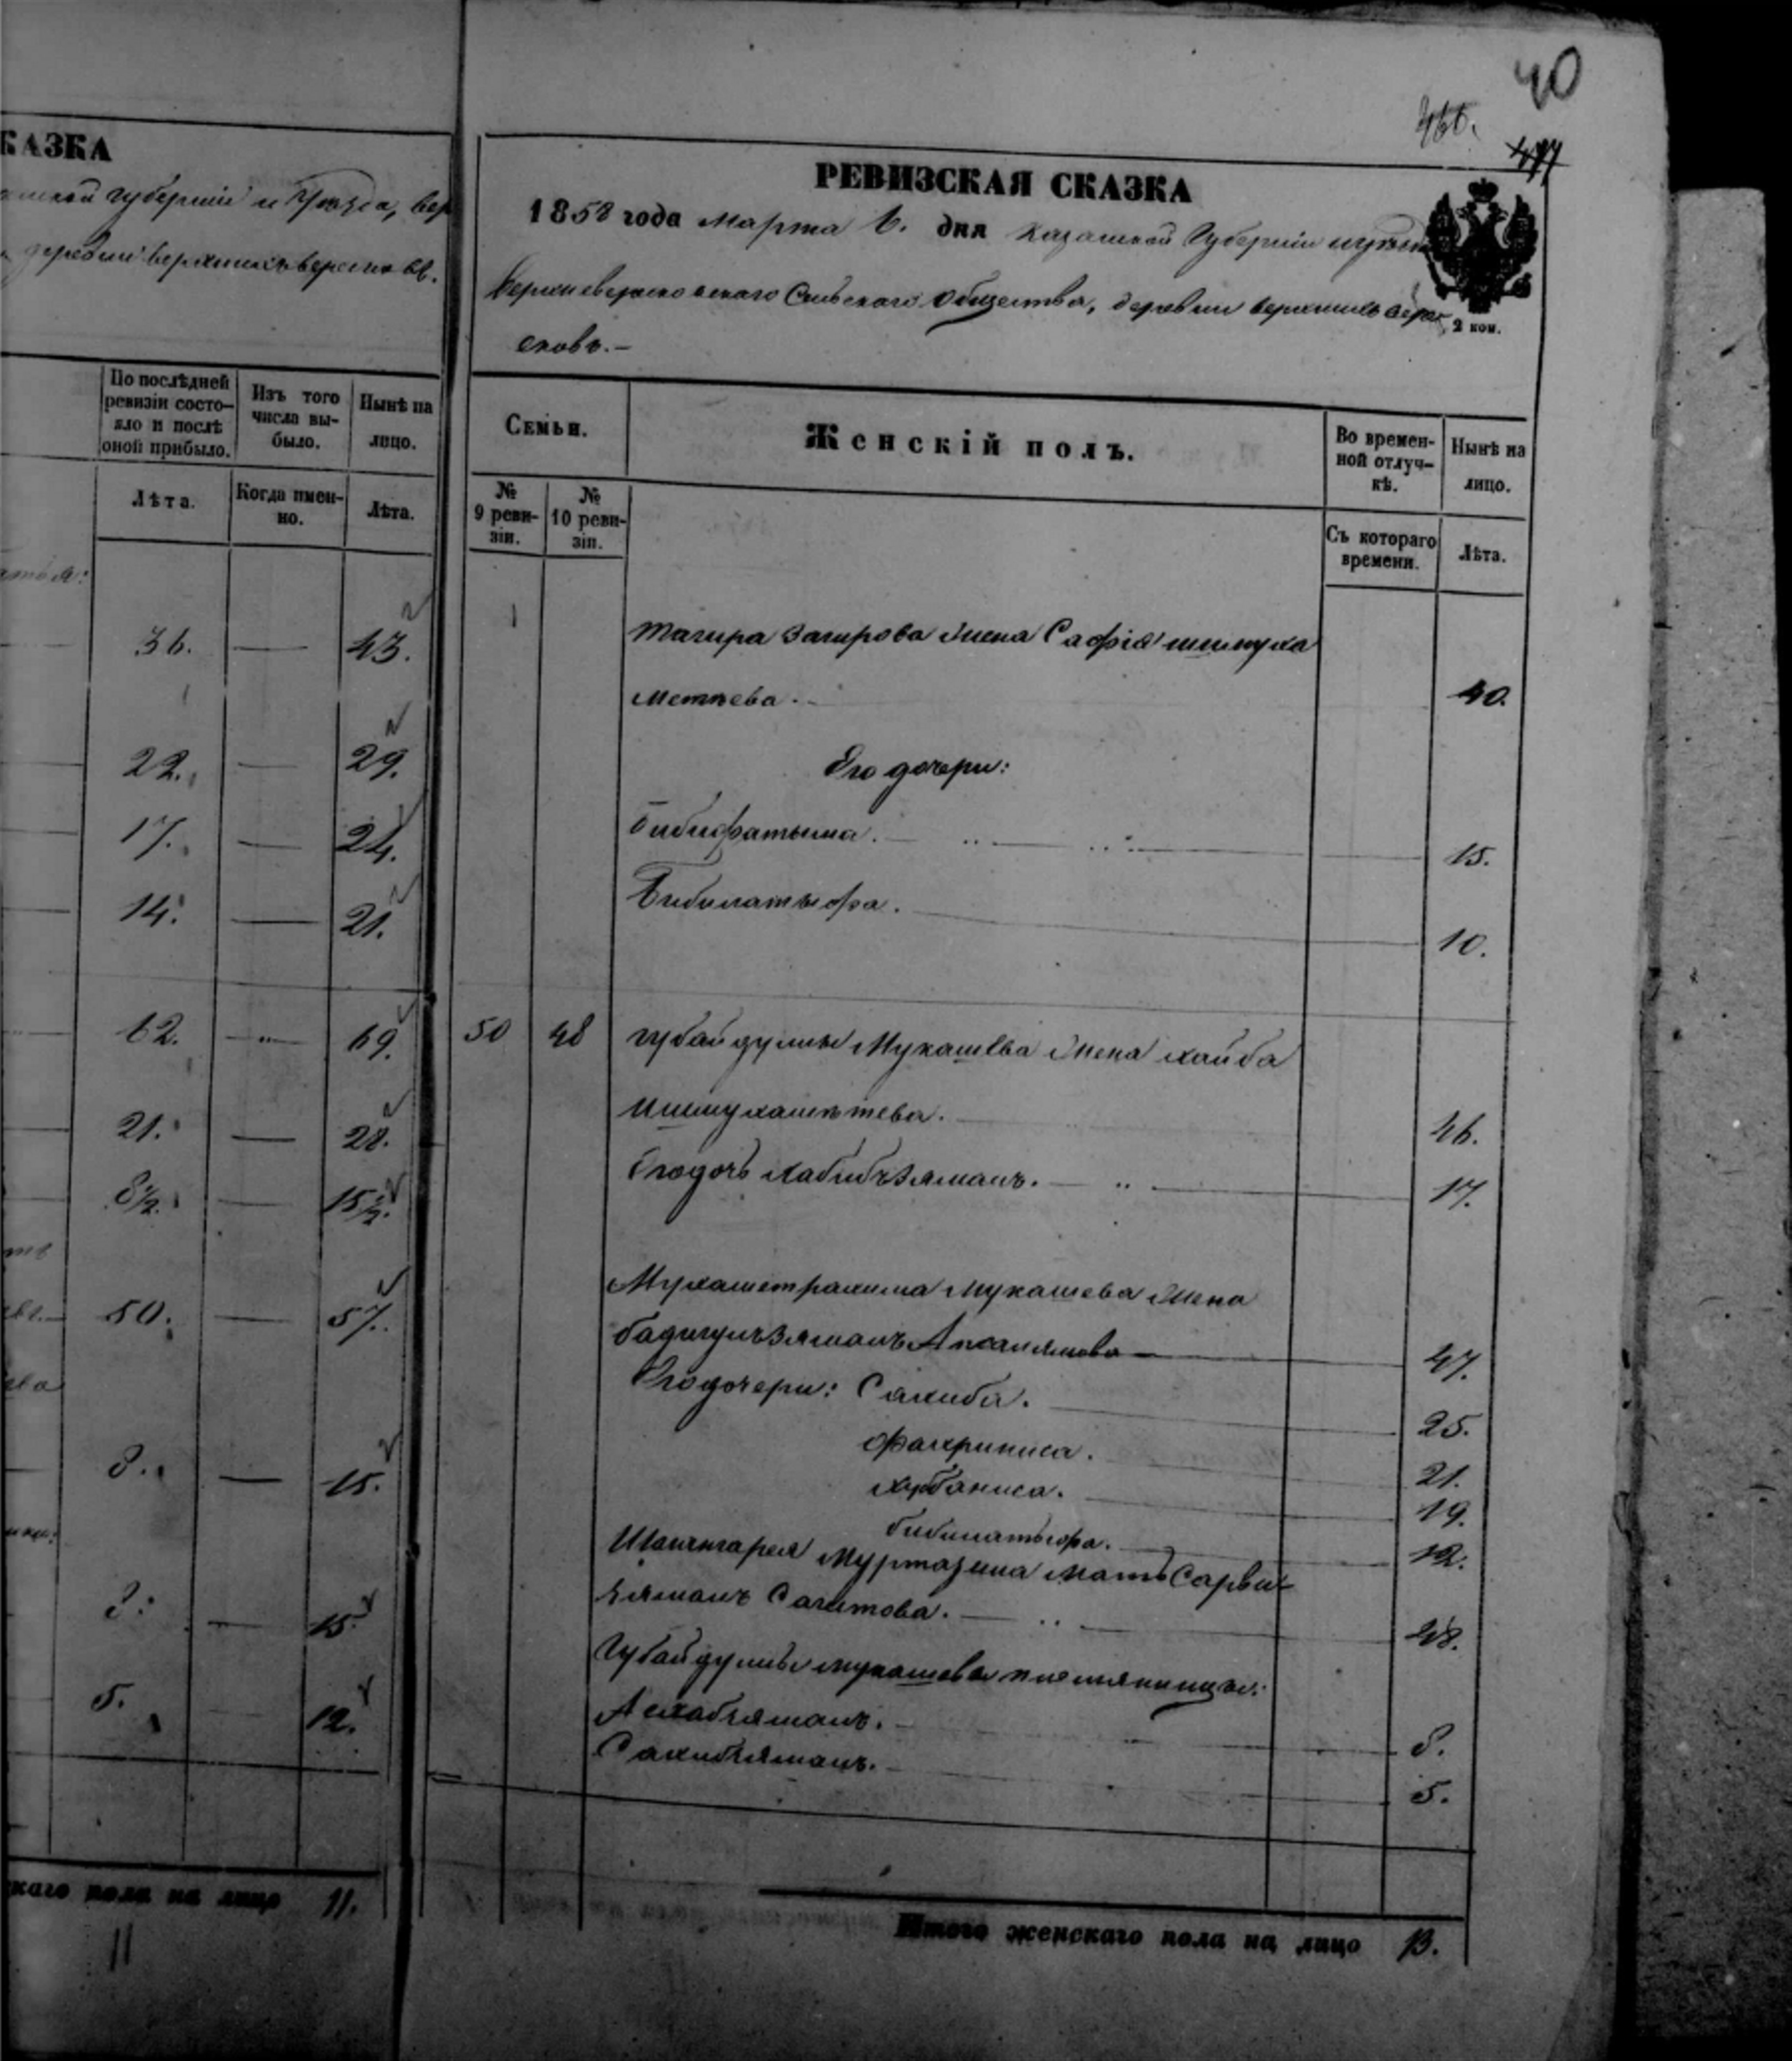 КАЗКА
губерніи и Уѣзда, вер
деревни верхнихъ вересковъ.
По послѣдней ревизіи состо-
яло и послѣ
оной прибыло.
Изъ того
числа вы-
было.
Нынѣ на
лицо.
Лѣта.
Когда имен-
но.
Лѣта.
36. — 43.
22. — 29.
17. — 24.
14. — 21.
62. — 69.
21. — 28.
8½. — 15½.
50. — 57.
8. — 15.
8. — 15.
5. — 12.
каго пола на лицо 11.
11
40
466.
477
РЕВИЗСКАЯ СКАЗКА
1858 года Марта 6. дня Казанской Губерніи и уѣзда
Верхневересковскаго Сельскаго Общества, деревни верхнихъ вере
сковъ.—
2 коп.
Семьи.
Женскій полъ.
Во времен-
ной отлуч-
кѣ.
Нынѣ на
лицо.
№
9 реви-
зіи.
№
10 реви-
зіи.
Съ котораго
времени.
Лѣта.
Тагира Загирова жена Сафія ишмуха
метьева. — 40.
Его дочери:
Бибифатыма. — 15.
Бибилатыфа. — 10.
50 48 Губайдуллы Мукашева жена хайба
Ишмухаметева. — 46.
Его дочь Хабибъзяманъ. — 17.
Мухаметрахима Мукашева жена
бадигулъзяманъ — 47.
Его дочери: Сахиба. — 25.
Фахриниса. — 21.
Хубаниса. — 19.
бибилатыфа. — 12.
Шагингарея Муртазина мать Сарви-
зяманъ Сагитова. — 48.
Губайдуллы мукашева племянницы:
Асхабзяманъ. — 8.
Сахибзяманъ. — 5.
Итого женскаго пола на лицо 13.